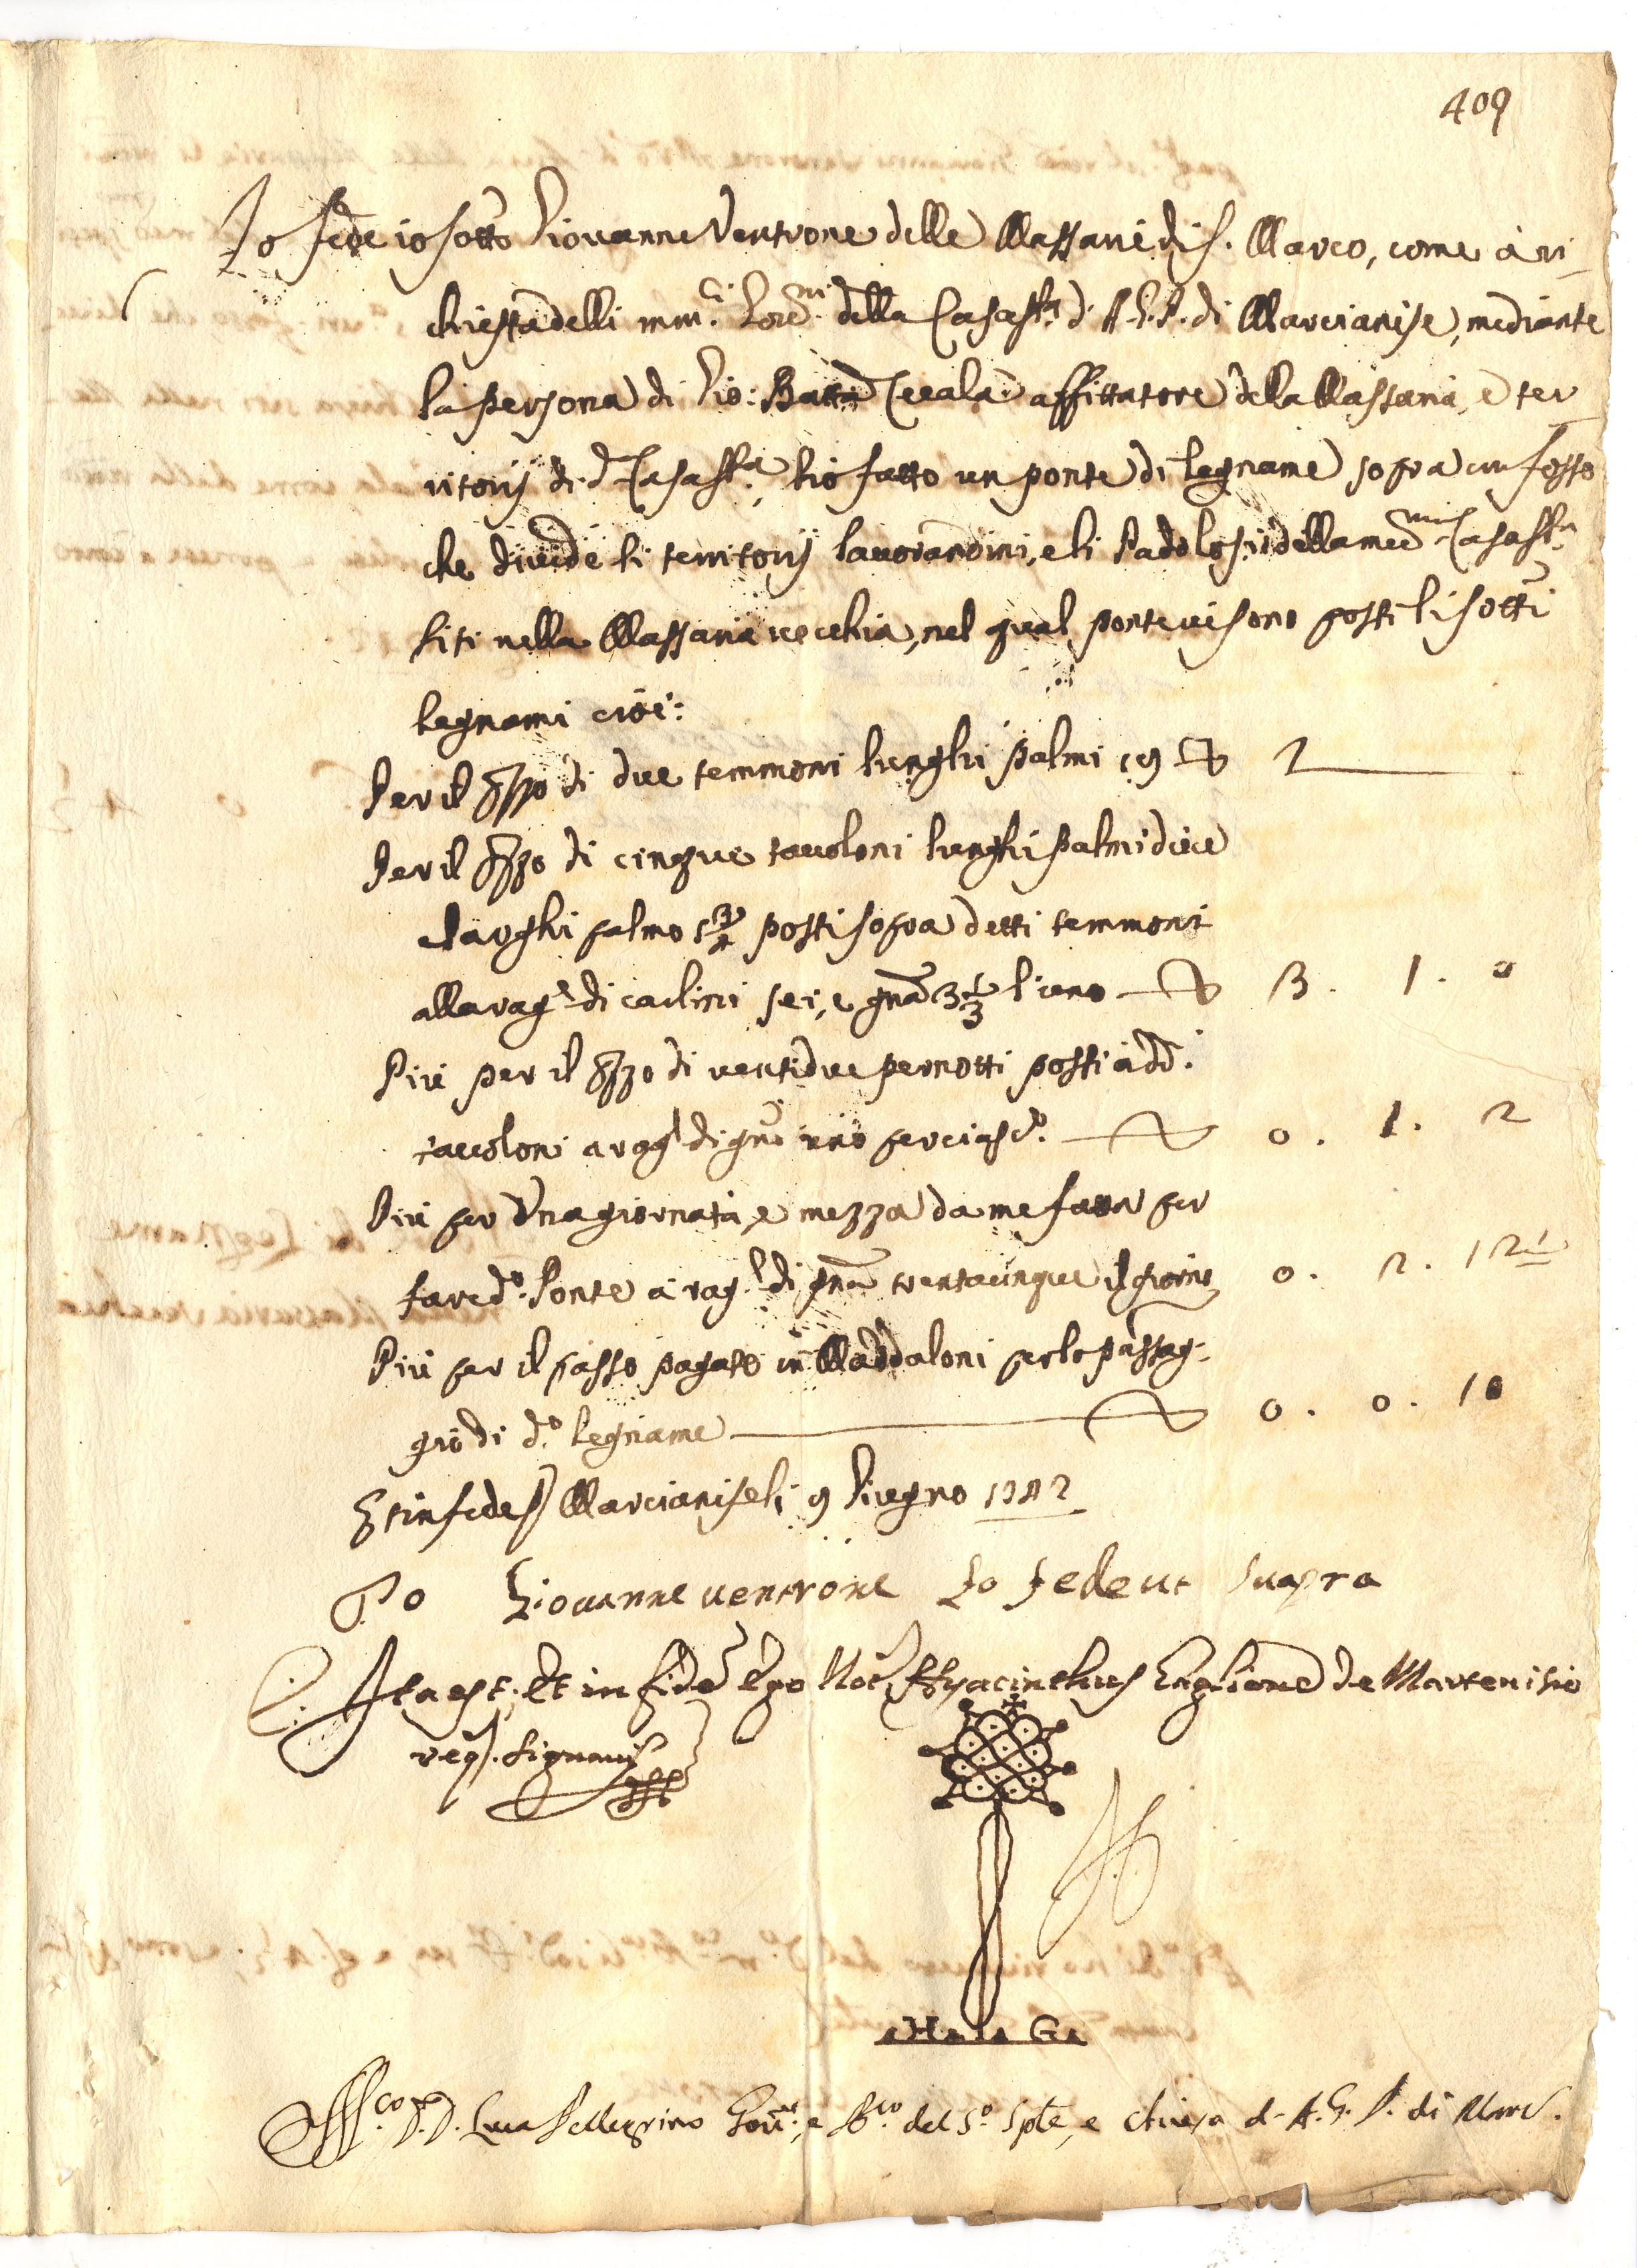 409
Fo fede io sotto Giovanne Ventrone delle Massarie di S. Marco, come à ri-
chiesta delli mm.ci Gov.ni della Casa S.ta d. A.G.P. di Marcianise, mediante
la persona di Gio: Batta Cecala affittatore della Massaria, e ter
ritorij di d.a Casa S.ta, hò fatto un ponte di legname sopra un fosso
che divide li territorij lavorandini, e li Padolosi della med.ma Casa S.ta
siti nella Massaria vecchia, nel qual ponte vi sono posti li sotti
legnami cioè:
Per il prezzo di due temmoni lunghi palmi 19 D 2
Per il prezzo di cinque tavoloni lunghi palmi diece
e larghi palmo 1 3/4 posti sopra detti temmoni
alla rag.e di carlini sei, e gna 3 1/3 l'uno D 3. 1. 0
Più per il prezzo di ventidue pernotti posti à dd.i
tavoloni a rag.e di gno uno per ciasc.o 0. 1. 2
Più per una giornata, e mezza da me fatta per
fare d.o Ponte à rag.e di gna trentacinque il giorno 0. 2. 12 1/2
Più per il passo pagato in Maddaloni per lo passag-
gio di d.o legname 0. 0. 10
Et in fede Marcianise li 9 Giugno 1742
Io Giovanne ventrone fo fede ut supra
Ita est; Et in fidem Ego Not.r Hyacinthus Taglione de Martenisio
req.s signavi
H G
D. Luca Pellegrino Gov.re, e del S.o Spte, e Chiesa d. A.G.P. di Marc.